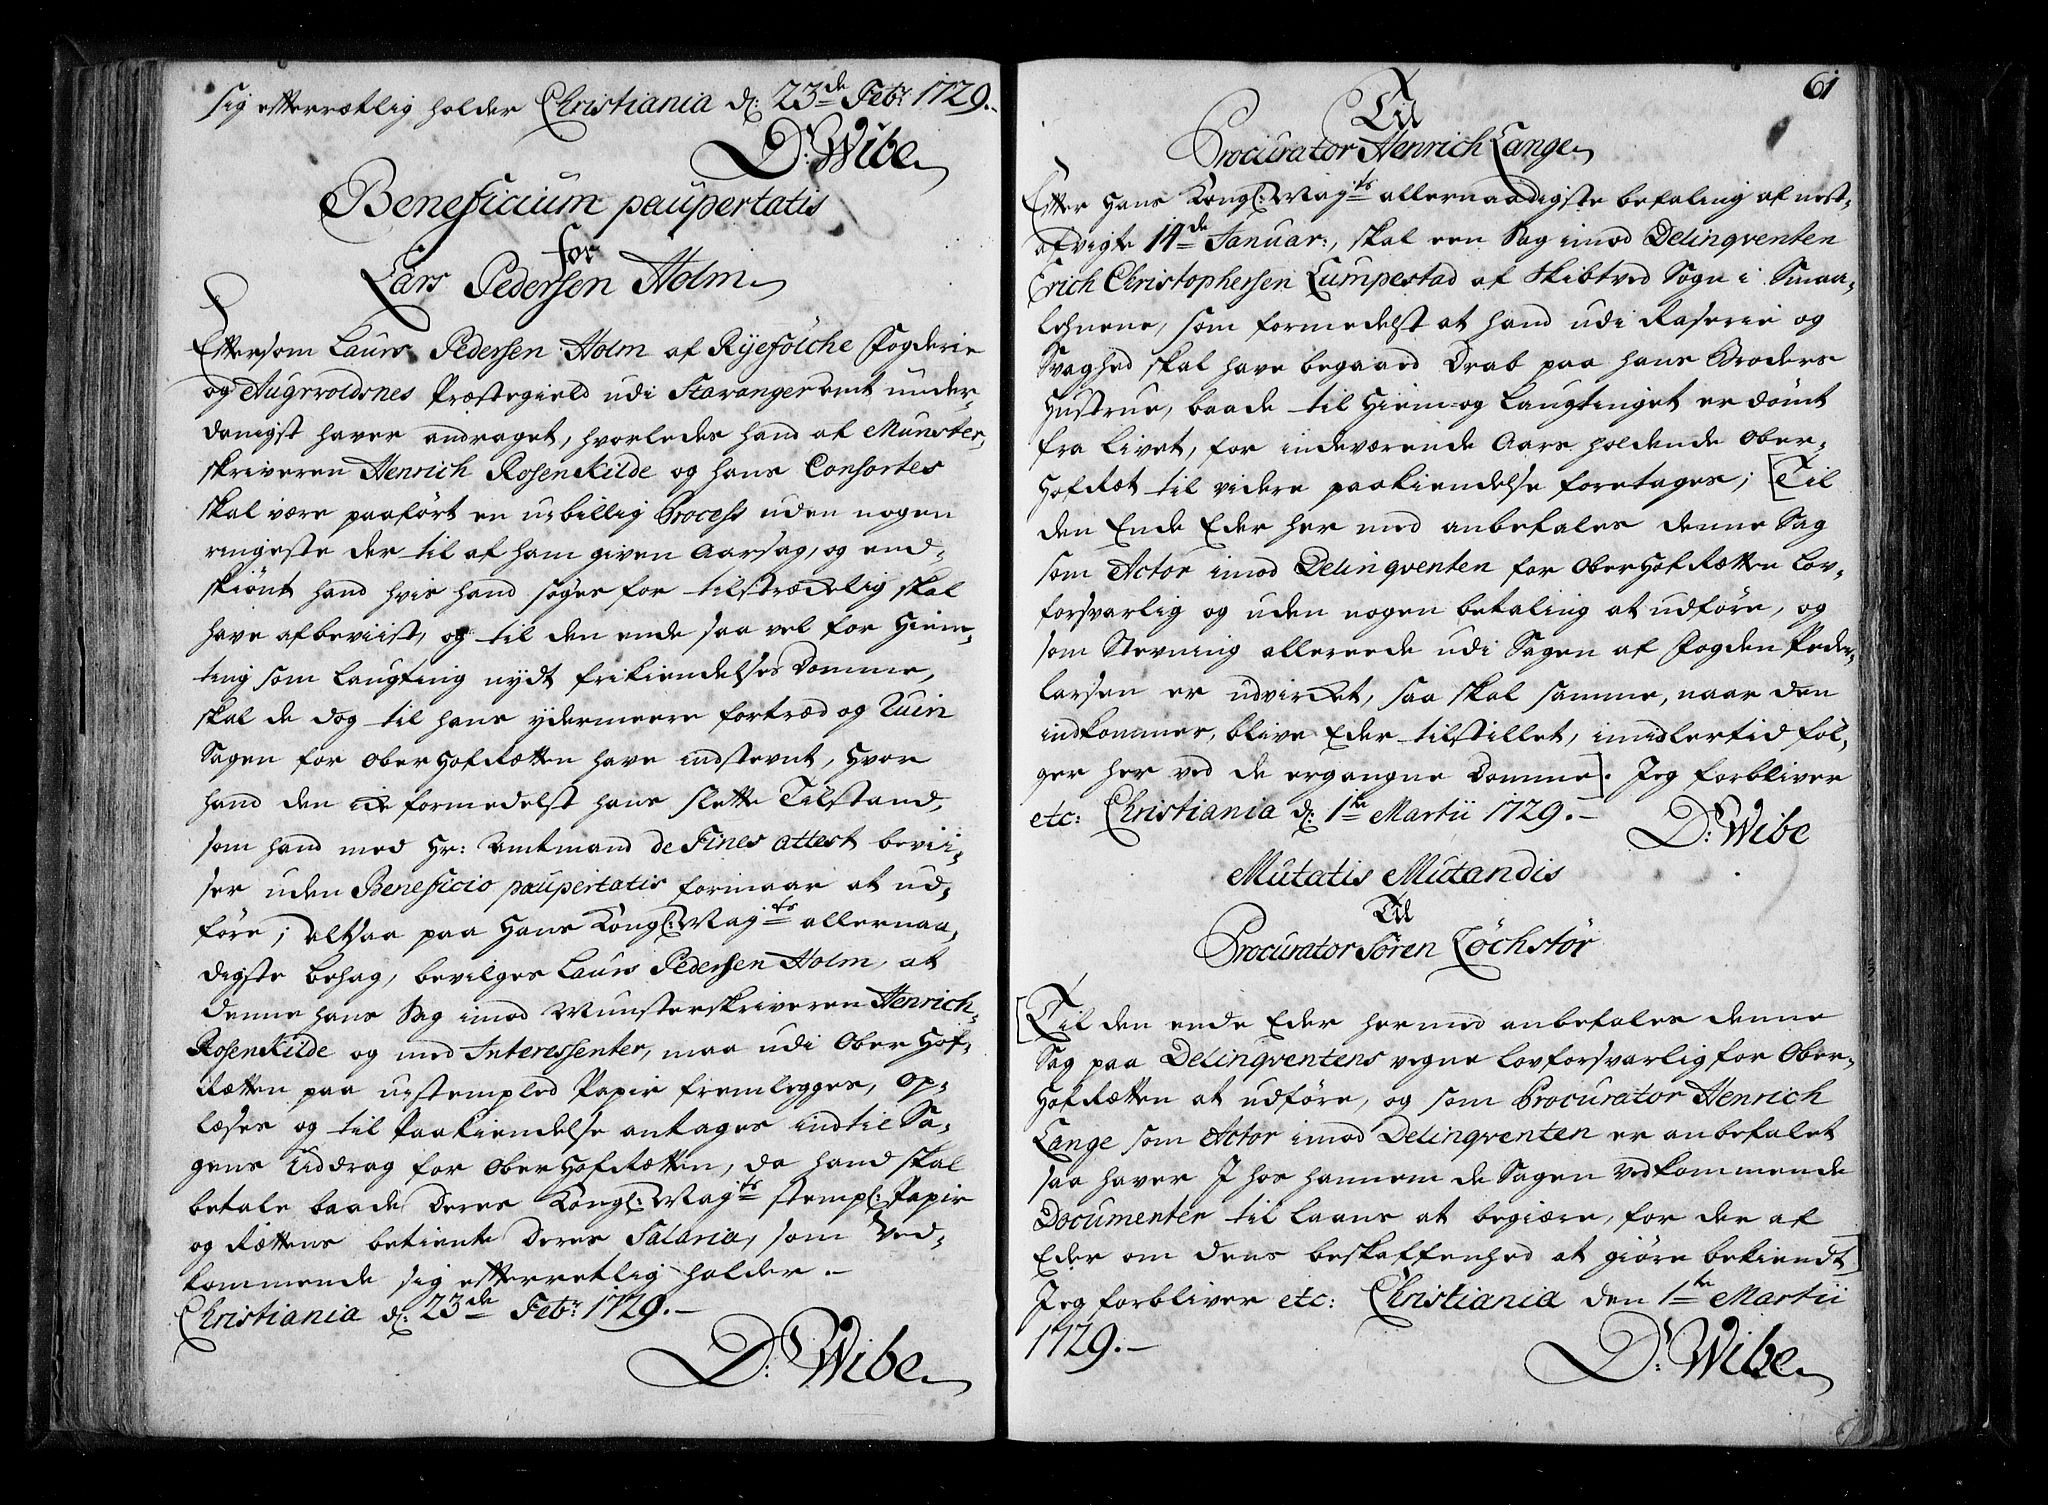 sig efterrætlig holder Christiania d: 23de Febr: 1729.-
D: Wibe
Beneficium paupertatis
for
Lars Pedersen Holm
Eftersom Laurs Pedersen Holm af Ryefölche Fogderie
og Augvoldsnes Præstegield udi Stavanger amt under-
danigst haver andraget, hvorledes hand af Munster-
skriveren Henrich Rosenkilde og hans Consortes
skal være paaført en u-billig Process uden nogen
ringeste der til af ham given Aarsag, og end-
skiönt hand hvis hand søges for tilstrækelig skal
have afbeviist, og til den ende saa vel for Hiem-
ting som Laugting nydt frikiendelses Domme,
skal de dog til hans ydermeere fortræd og Ruin
Sagen for OberHofRetten have indstevnt, hvor
hand den formedelst hans slette Tilstand,
som hand med Hr: Amtmand de Fines attest bevii-
ser uden Beneficio paupertatis formaar at ud-
føre; Altsaa paa Hans Kongl: Mayts allernaa-
digste behag, bevilges Laurs Pedersen Holm, at
denne hans Sag imod Munsterskriveren Henrich
Rosenkilde og med Interessenter, maa udi Ober Hof-
Retten paa ustempled Papir fremlegges, op-
læses og til Paakiendelse antages indtil Sa-
gens Uddrag for OberHofRetten, da hand skal
betale baade Deres Kongl: Mayts stempl: Papir
og Rettens betiente Deres Salaria, som Ved-
kommende sig efterretlig holder.-
Christiania d: 23de Febr: 1729.-
D: Wibe
61
Til
Procurator Henrich Lange
Efter Hans Kongl: Mayts allernaadigste befaling af nest-
afvigte 14de Januar:, skal een Sag imod Delinqventen
Erich Christophersen Lumpestad af Skibtved Sogn i Smaa-
lehnene, som formedelst at hand udi Raserie og
Svaghed skal have begaaed Drab paa hans Broders
Hustrue, baade til Hiem- og Laugtinget er dömt
fra Livet, for indeværende Aars holdende Ober-
HofRet til videre paakiendelse foretages; [Til
den Ende Eder her med anbefales denne Sag
som Actor imod Delinqventen for OberHofRetten Lov-
forsvarlig og uden nogen betaling at udföre, og
som Stevning allereede udi Sagen af Fogden Peder
Larsen er udvirket, saa skal samme, naar den
indkommer, blive Eder tilstillet, imidlertid föl-
ger her ved de ergangne Domme]. Jeg forbliver
etc: Christiania d: 1te Martii 1729.-
D: Wibe
Mutatis Mutandis
Til
Procurator Sören Löchstör
[Til den ende Eder hermed anbefales denne
Sag paa Delinqventens vegne lovforsvarlig for Ober-
HofRetten at udføre, og som Procurator Henrich
Lange som Actor imod Delinqventen er anbefalet
saa haver I hos hannem de Sagen vedkommende
Documenter til laans at begiære, for der af
Eder om dens beskaffenhed at giöre bekiendt]
Jeg forbliver etc: Christiania den 1te Martii
1729.-
D: Wibe